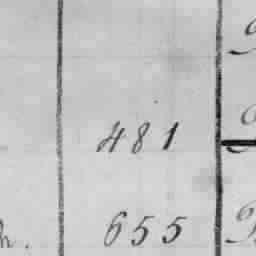 481
655